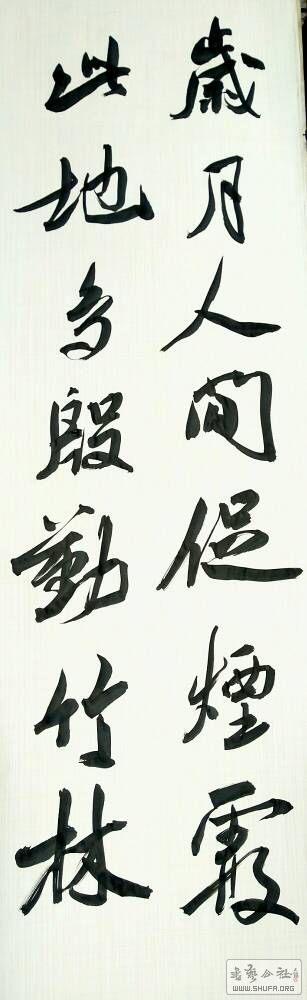 歲月人間促煙霞
此地多殷勤竹林
书艺公社
WWW.SHUFA.ORG